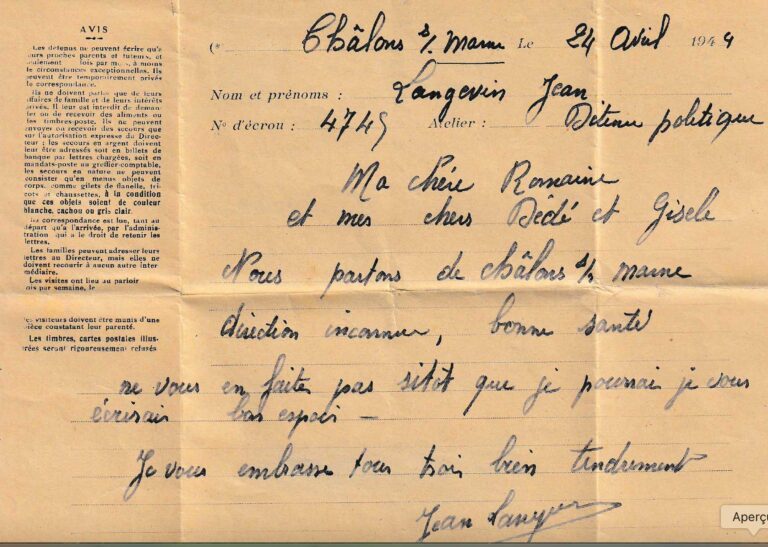 AVIS
Les détenus ne peuvent écrire qu'à
leurs proches parents et tuteurs, et
seulement fois par mois, à moins
de circonstances exceptionnelles. Ils
peuvent être temporairement privés
de correspondance.
Ils ne doivent parler que de leurs
affaires de famille et de leurs intérêts
privés. Il leur est interdit de deman-
der ou de recevoir des aliments ou
des timbres-poste. Ils ne peuvent
envoyer ou recevoir des secours que
sur l'autorisation expresse du Direc-
teur ; les secours en argent doivent
leur être adressés soit en billets de
banque par lettres chargées, soit en
mandats-poste au greffier-comptable,
les secours en nature ne peuvent
consister qu'en menus objets de
corps, comme gilets de flanelle, tri-
cots et chaussettes, à la condition
que ces objets soient de couleur
blanche, cachou ou gris clair.
La correspondance est lue, tant au
départ qu'à l'arrivée, par l'adminis-
tration qui a le droit de retenir les
lettres.
Les familles peuvent adresser leurs
lettres au Directeur, mais elles ne
doivent recourir à aucun autre inter-
médiaire.
Les visites ont lieu au parloir
fois par semaine, le
Les visiteurs doivent être munis d'une
pièce constatant leur parenté.
Les timbres, cartes postales illus-
trées seront rigoureusement refusés
(* Châlons s/ Marne Le 24 Avril 1944
Nom et prénoms : Langevin Jean
N° d'écrou : 4745 Atelier : Détenu politique
Ma chère Romaine
et mes chers Dédé et Gisèle
Nous partons de châlons s/ marne
direction inconnue, bonne santé
ne vous en faites pas sitôt que je pourrai je vous
écrirais bon espoir –
Je vous embrasse tous trois bien tendrement
Jean Langevin
Aperçu